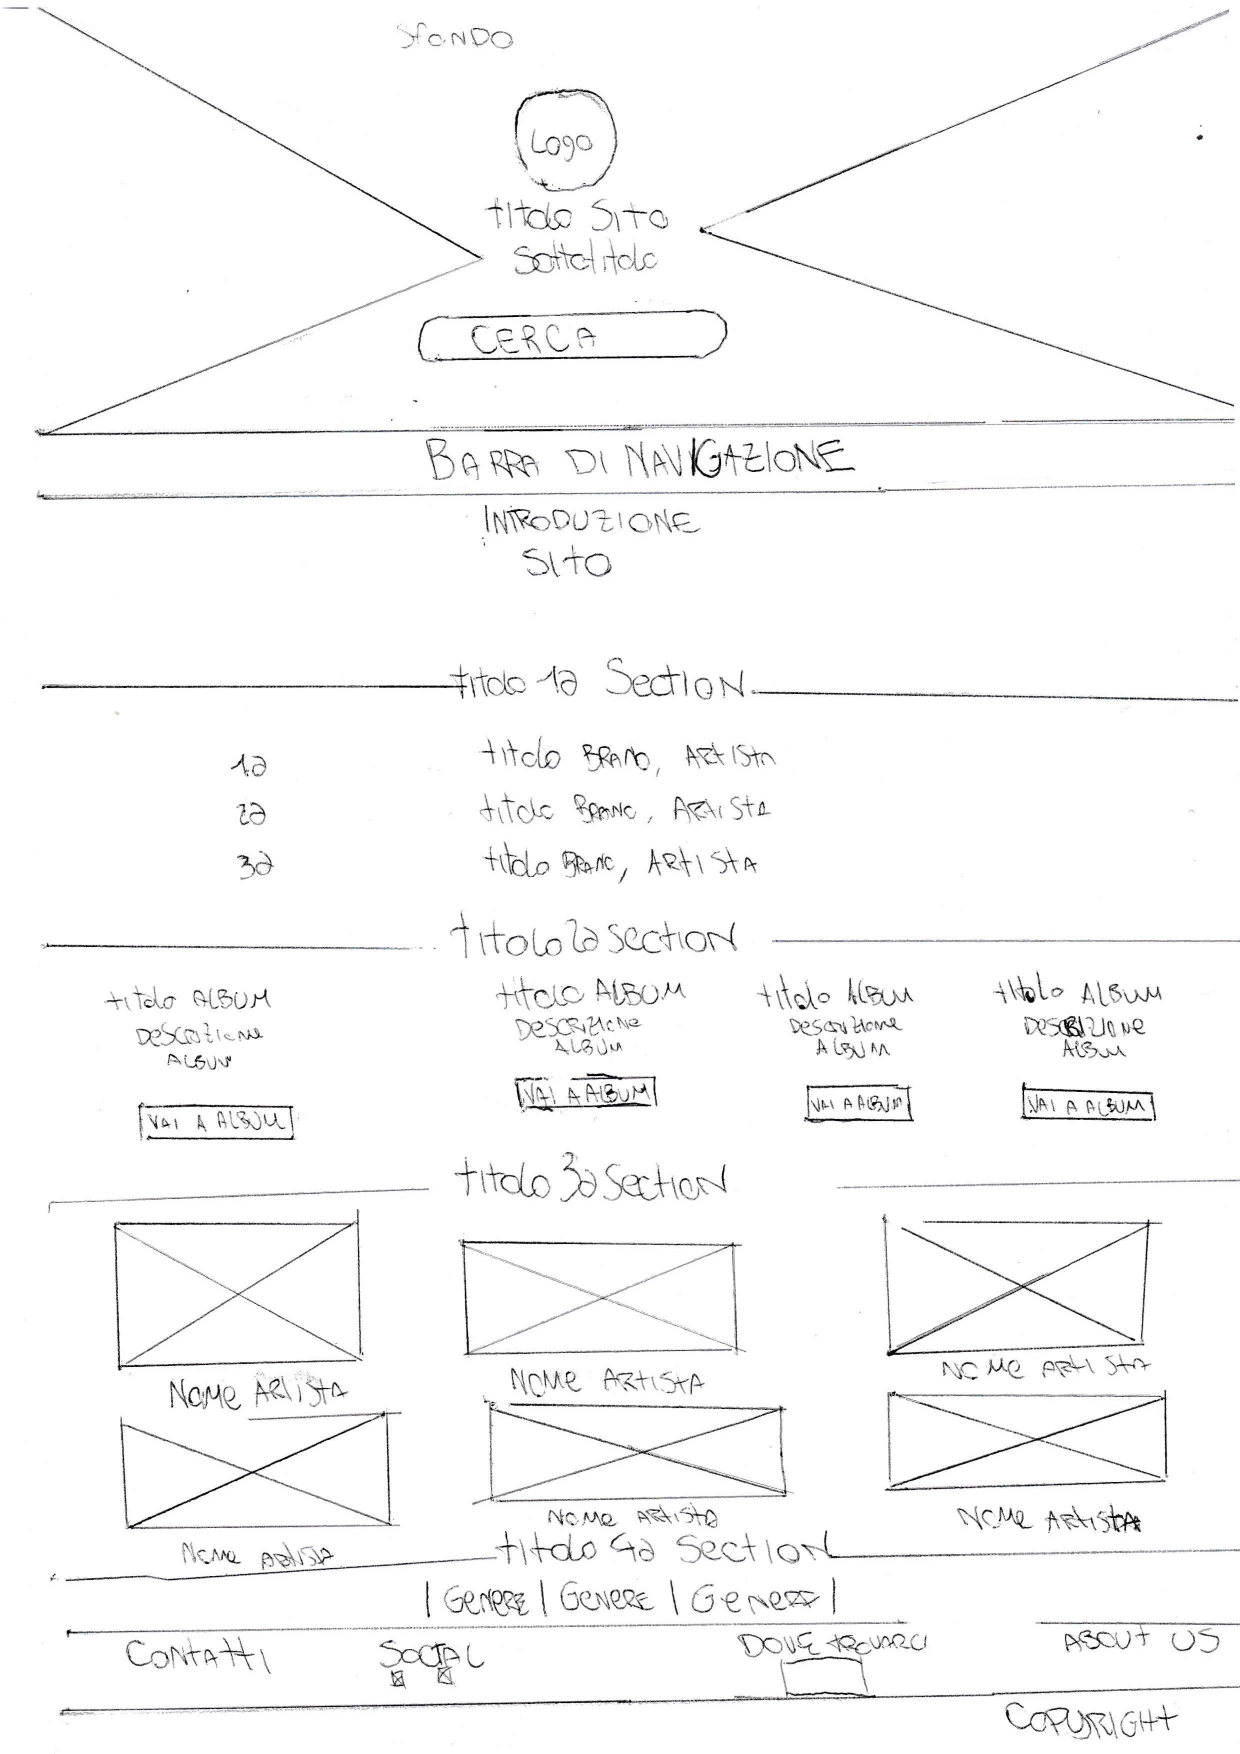 SfONDO
Logo
titolo Sito
Sottotitolo
CERCA
BARRA DI NAVIGAZIONE
INTRODUZIONE
SITO
titolo 1a Section
1a titolo BRANO, ARTISTA
2a titolo BRANO, ARTISTA
3a titolo BRANO, ARTISTA
titolo 2a Section
titolo ALBUM titolo ALBUM titolo ALBUM titolo ALBUM
DESCRIZIONE DESCRIZIONE DESCRIZIONE DESCRIZIONE
ALBUM ALBUM ALBUM ALBUM
VAI A ALBUM VAI A ALBUM VAI A ALBUM VAI A ALBUM
titolo 3a Section
NOME ARTISTA NOME ARTISTA NOME ARTISTA
NOME ARTISTA NOME ARTISTA NOME ARTISTA
titolo 4a Section
| GENERE | GENERE | GENERE |
CONTATTI SOCIAL DOVE TROVARCI ABOUT US
COPYRIGHT